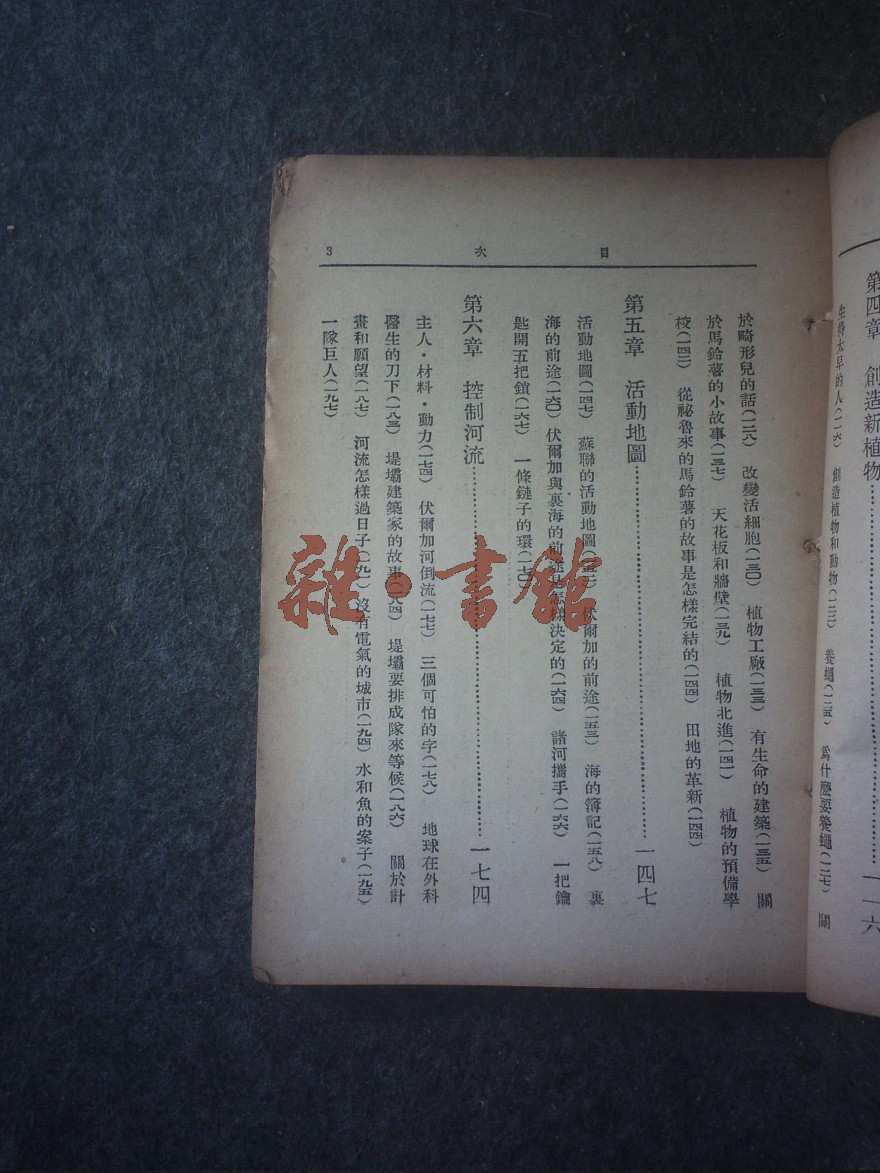 第四章　創造新植物……一一六
生得太早的人(一一六)　創造植物和動物(一二三)　養蠅(一二五)　爲什麼要養蠅(一二七)　關
目　次　3
於畸形兒的話(一二八)　改變活細胞(一三〇)　植物工廠(一三三)　有生命的建築(一三五)　關
於馬鈴薯的小故事(一三七)　天花板和牆壁(一三九)　植物北進(一四一)　植物的預備學
校(一四二)　從祕魯來的馬鈴薯的故事是怎樣完結的(一四四)　田地的革新(一四四)
第五章　活動地圖……一四七
活動地圖(一四七)　蘇聯的活動地圖(一五一)　伏爾加的前途(一五三)　海的簿記(一五八)　裏
海的前途(一六〇)　伏爾加與裏海的前途是怎樣決定的(一六四)　諸河攜手(一六六)　一把鑰
匙開五把鎖(一六七)　一條鏈子的環(一七〇)
第六章　控制河流……一七四
主人·材料·動力(一七四)　伏爾加河倒流(一七七)　三個可怕的字(一七八)　地球在外科
醫生的刀下(一八三)　堤壩建築家的故事(一八四)　堤壩要排成隊來等候(一八六)　關於計
畫和願望(一八七)　河流怎樣過日子(一九一)　沒有電氣的城市(一九四)　水和魚的案子(一九五)
一隊巨人(一九七)
雜·書館